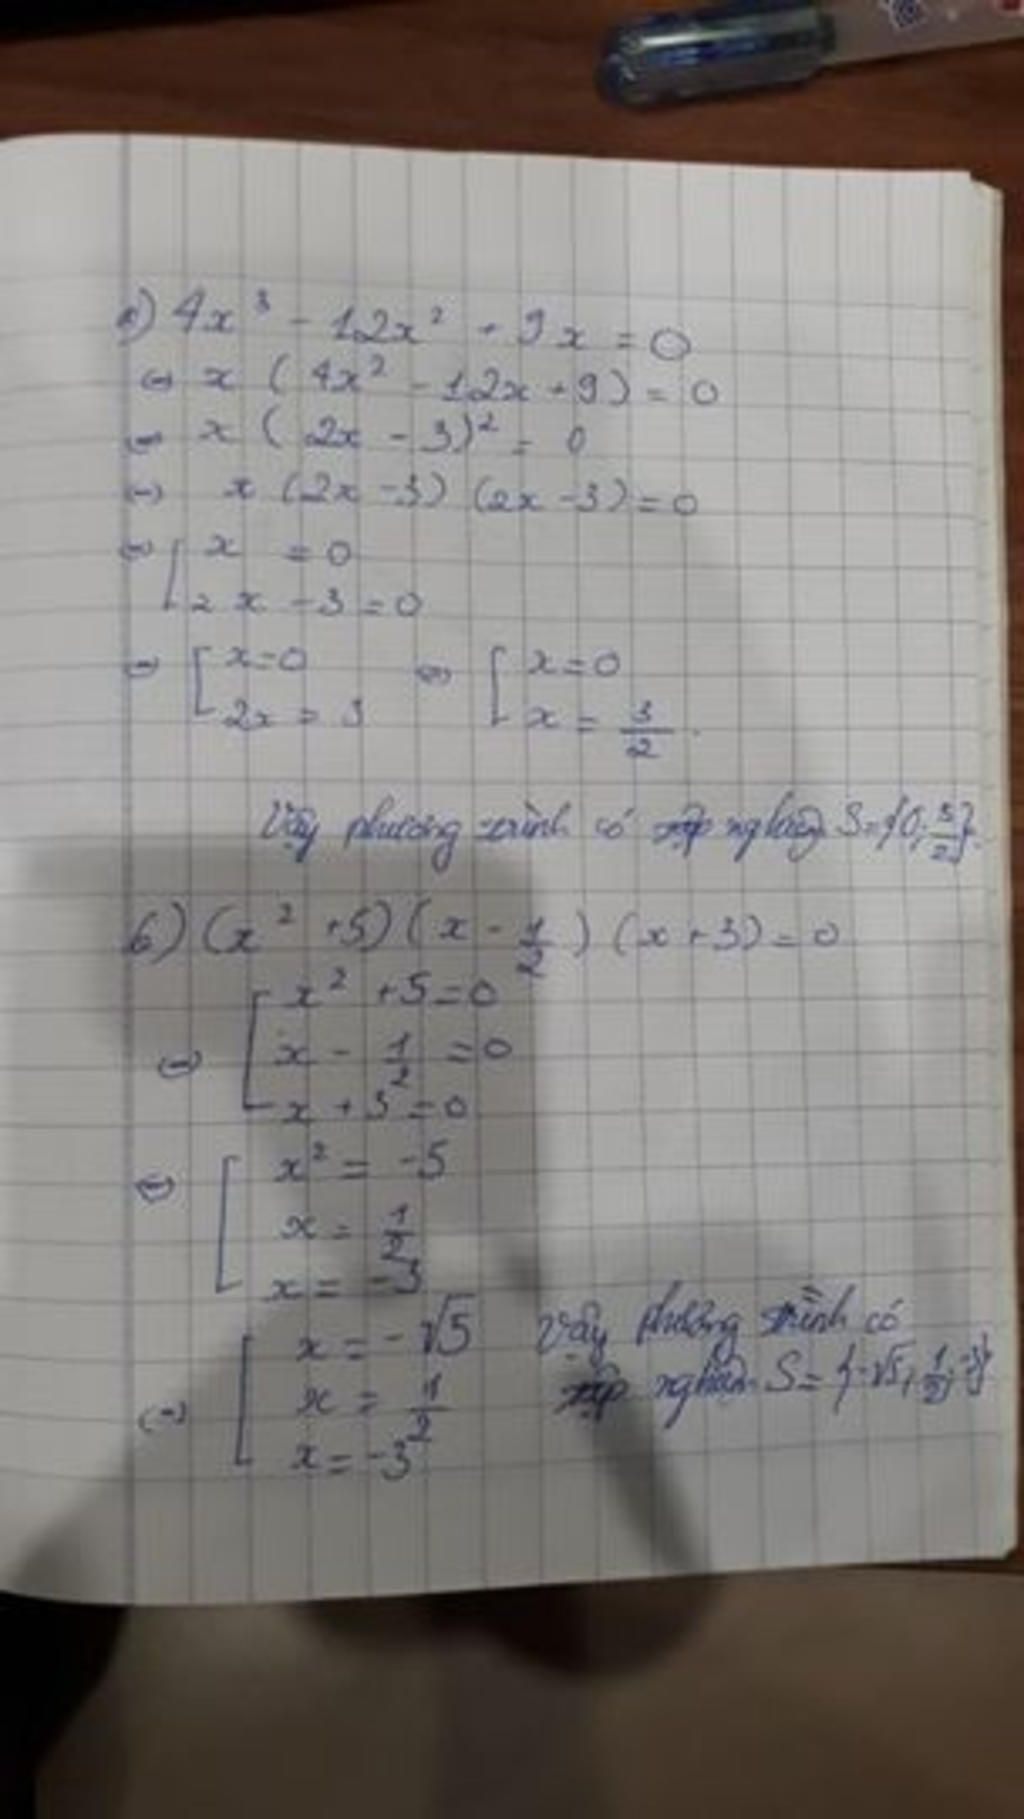 a) 4x³ - 12x² + 9x = 0
⇔ x ( 4x² - 12x + 9) = 0
⇔ x ( 2x - 3)² = 0
⇔ x (2x - 3) (2x - 3) = 0
⇔ [ x = 0
2x - 3 = 0
⇔ [ x = 0 ⇔ [ x = 0
2x = 3 x = 3/2 .
Vậy phương trình có tập nghiệm S = {0; 3/2}.
b) (x² + 5) ( x - 1/2 ) (x + 3) = 0
[ x² + 5 = 0
⇔ x - 1/2 = 0
x + 3 = 0
⇔ [ x² = -5
x = 1/2
x = -3
[ x = -√5 Vậy phương trình có
⇔ x = 1/2 tập nghiệm S = {-√5; 1/2; -3}
x = -3